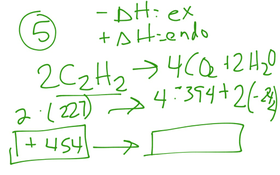 5
- ΔH = ex
+ ΔH = endo
2C₂H₂ → 4CO₂ + 2H₂O
2 · (227) → 4 · -394 + 2(-242)
+ 454 →